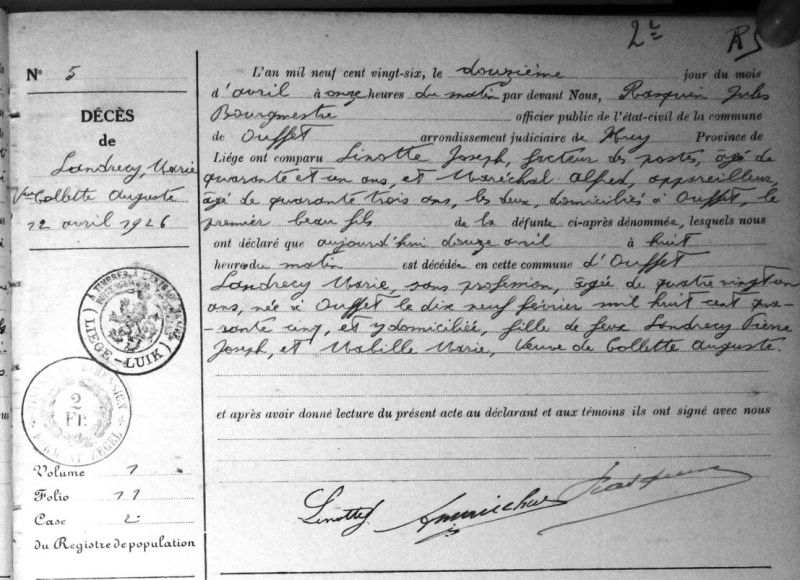 2
R5
N° 5
DÉCÈS
de
Landrecy, Marie
Vve Collette Auguste
12 avril 1926
À TIMBRER À L'EXTRAORDINAIRE
(LIÈGE-LUIK)
2
FR.
Volume 1
Folio 11
Case 2
du Registre de population
L'an mil neuf cent vingt-six, le douzième jour du mois
d'avril à onze heures du matin par devant Nous, Rasquin Jules
Bourgmestre officier public de l'état-civil de la commune
de Ouffet arrondissement judiciaire de Huy Province de
Liége ont comparu Linotte Joseph, facteur des postes, âgé de
quarante et un ans, et Maréchal Alfred, appareilleur,
âgé de quarante trois ans, les deux, domiciliés à Ouffet, le
premier beau fils de la défunte ci-après dénommée, lesquels nous
ont déclaré que aujourd'hui douze avril à huit
heures du matin est décédée en cette commune d'Ouffet
Landrecy Marie, sans profession, âgée de quatre vingt un
ans, née à Ouffet le dix neuf février mil huit cent qua-
-rante cinq, et y domiciliée, fille de feux Landrecy Pierre
Joseph, et Mabille Marie, Veuve de Collette Auguste.
et après avoir donné lecture du présent acte au déclarant et aux témoins ils ont signé avec nous
Linotte J
Amaréchal
Rasquin